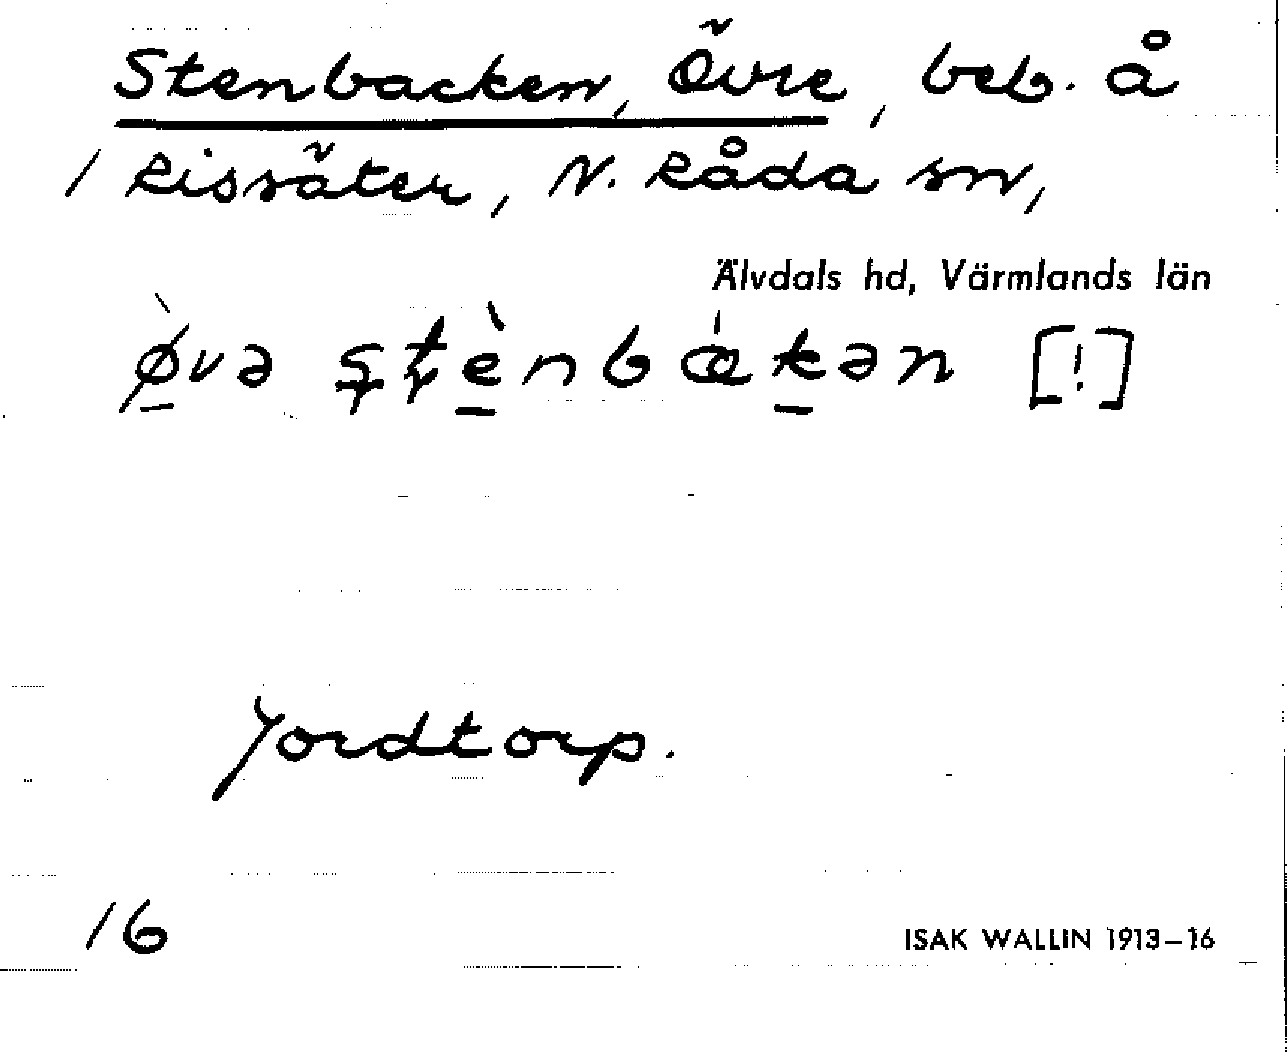 Stenbacken, Övre, beb. å
1 Rissäter, N. Råda sn,
Älvdals hd, Värmlands län
ø̀və stènbákən [!]
Jordtorp.
16
ISAK WALLIN 1913–16